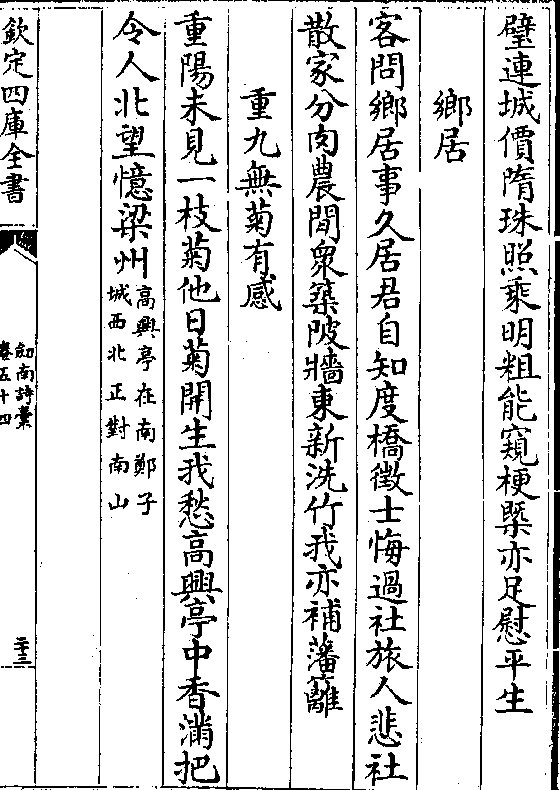 璧連城價隋珠照乘明粗能窺梗槩亦足慰平生
鄉居
客問鄉居事久居君自知度橋徴士悔過社旅人悲社
散家分肉農閒衆築陂牆東新洗竹我亦補藩籬
重九無菊有感
重陽未見一枝菊他日菊開生我愁高興亭中香滿把
令人北望憶梁州高興亭在南鄭子
城西北正對南山
欽定四庫全書
劍南詩藁
卷五十四
二十三